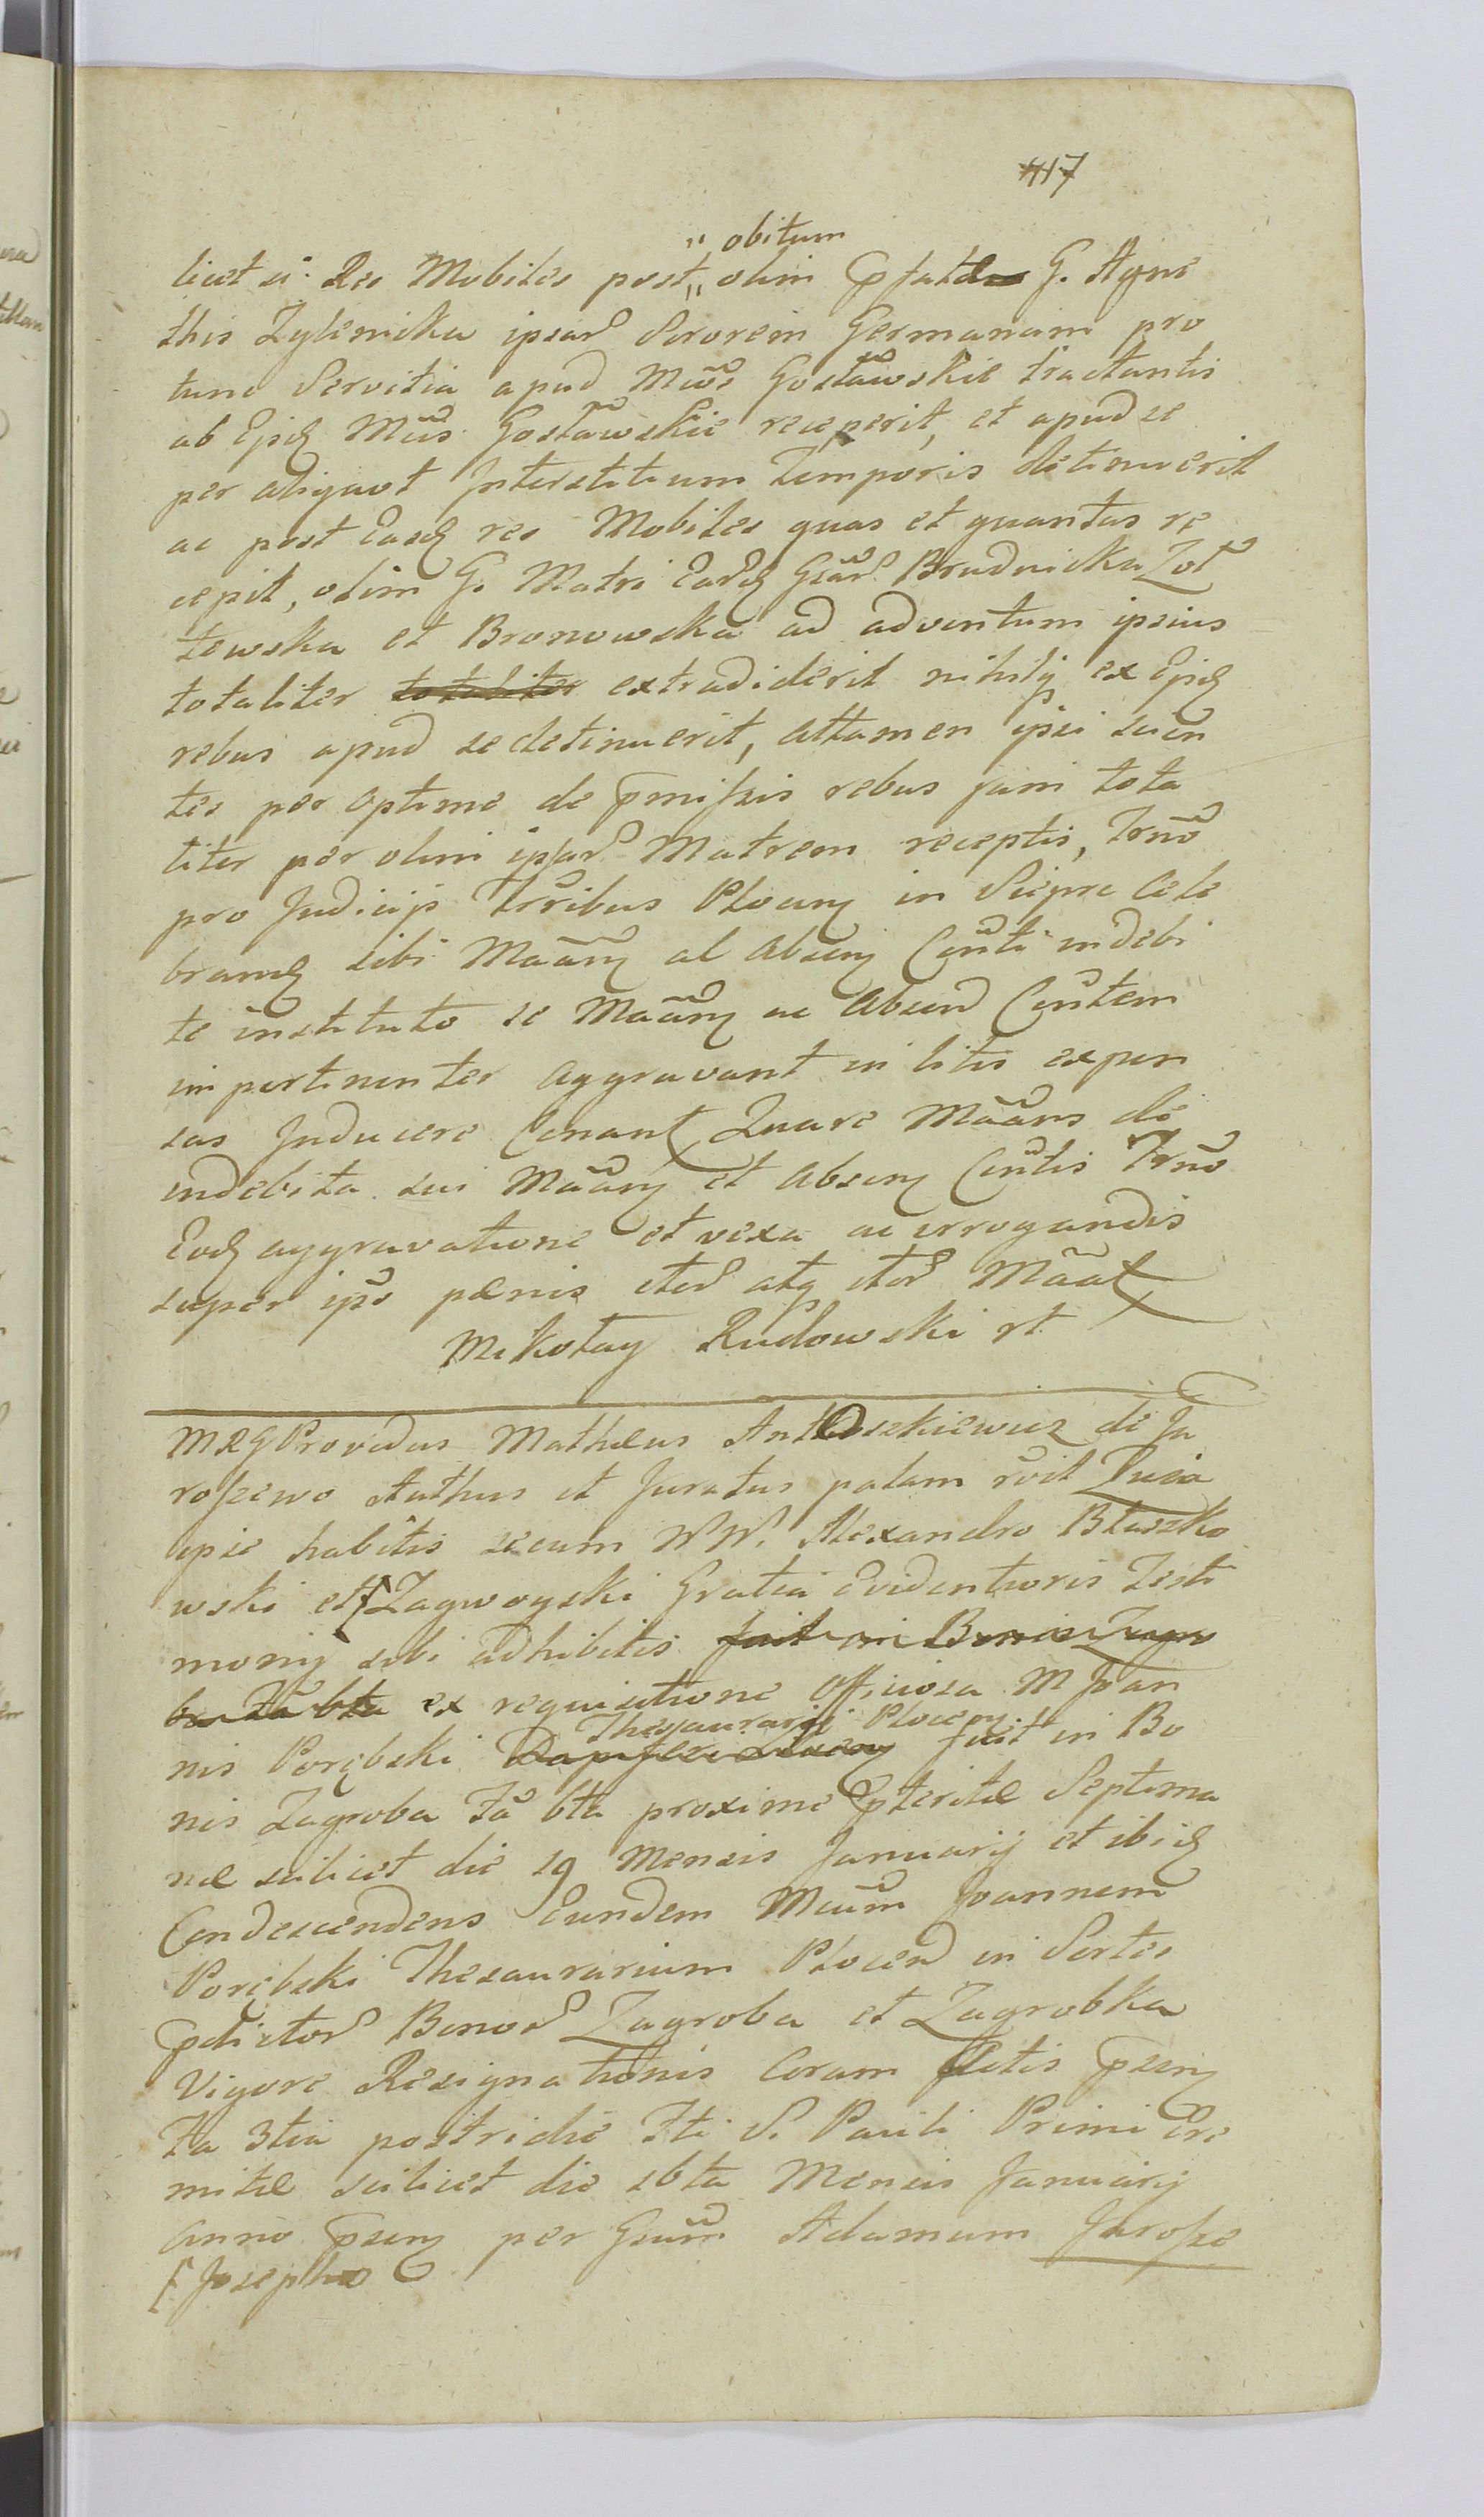 417
" obitum
licet si Res Mobiles post " olim pfatæ G. Agne
this Zylenicka ipsar Sororem Germanam pro
tunc Servitia apud Mcos Gostāwskie tractantis
ab Ejsd Mcis Gostāwskie receperit, et apud se
per aliquot Interstitium Temporis detinuerit
ac post Easd res Mobiles quas et quantas re
cepit, olim G. Matri Eard Gsar Brudnicka Zoł
towska et Bronowska ad adventum ipsius
totaliter totaliter extradiderit nihilq ex Ejsd
rebus apud se detinuerit, Attamen ipsi scien
tes per optime de pmissis rebus jam tota
liter per olim ipsar Matrem receptis, Trno
pro Judicijs Trribus Plocen in Sierpc Cele
brand sibi Maān al Absen Centī indebi
te instituto se Maān ac Absend Centem
impertinenter Aggravant in litis expen
sas Inducere Conant Quare Maāns de
indebita sui Maān et Absen Centis Trno
Eod aggravatione et vexa ac irrogandis
super ipso pænis iter atq iter Maāt
Mikołay Rudowski rt
MRG Providus Mathæus Antoszkiewicz de Ja
roszewo Authus et Juratus palam rvit Quia
ipse habitis secum WW. Alexandro Błaszko
wski et Zagwoyski Gratia Evidentioris Testi
monij sibi adhibitis fuit in Bonis Zagro
ba ex requisitione Officiosa M Joan
Thesaurarij Plocen
nis Porębski Dapiferi Plocen fuit in Bo
nis Zagroba Fa 6ta proxime pteritæ Septima
næ scilicet die 19 Mensis Januarij et ibid
Condescendens Eundem Mcum Joannem
Porębski Thesaurarium Plocen in Sortes
pdictor Bonor Zagroba et Zagrobka
Vigore Resignationis Coram Actis psen
Fa 3tia postridie Fti S. Pauli Primi Ere
mitæ scilicet die 16ta Mensis Januarij
Anno psen per Gsum Adamum Jarosze
Josepho